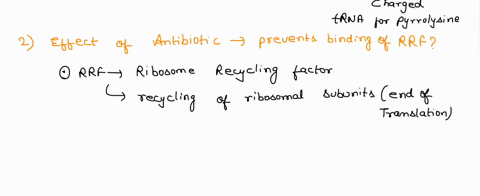 Charged
tRNA for Pyrrolysine
2) Effect of Antibiotic → prevents binding of RRF?
⊙ RRF → Ribosome Recycling factor
↳ recycling of ribosomal subunits (end of
Translation)